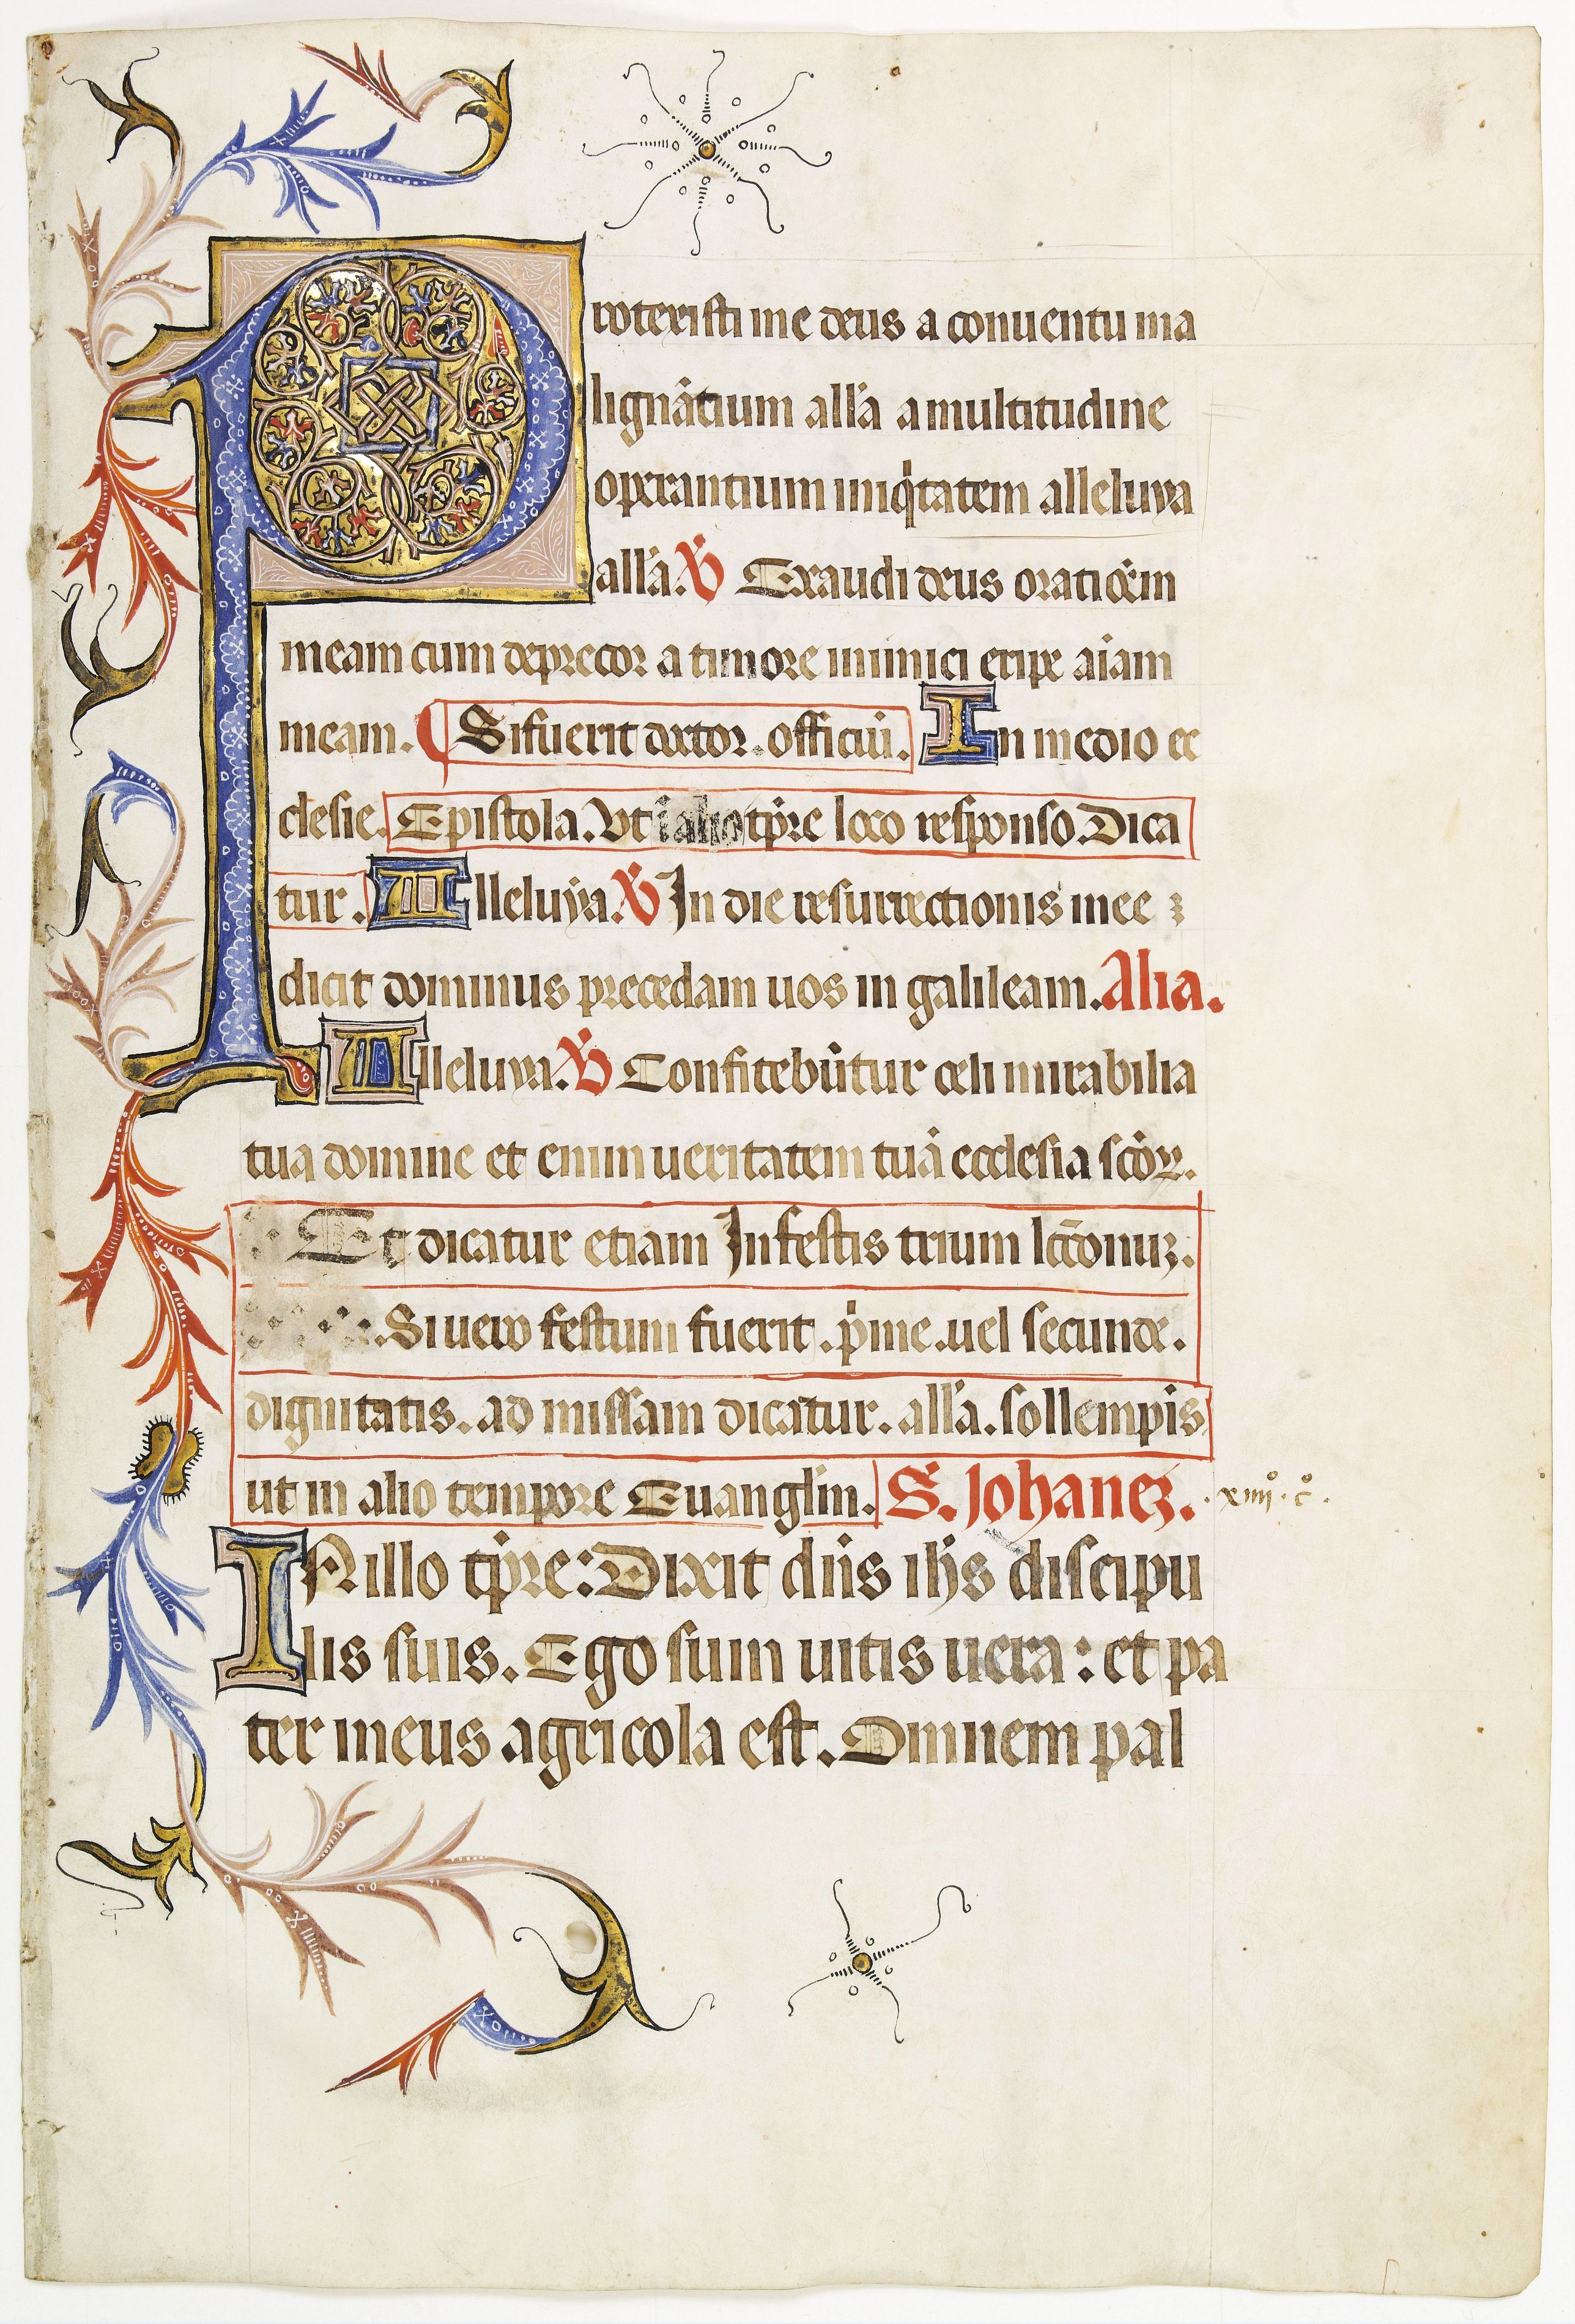 Protexisti me deus a conuentu ma
lignãtium all'a a multitudine
operantium iniqͥtatem alleluya
all'a. ℣ Exaudi deus oratiõem
meam cum deprecor a timore inimici eripe aĩam
meam. Si fuerit doctor. officiũ. In medio ec
clesie. Epistola. Vt ĩ alio tp̃re loco responso. Dica
tur. Alleluya. ℣ In die resurrectionis mee
dicit dominus precedam uos in galileam. Alia.
Alleluya. ℣ Confitebũtur celi mirabilia
tua domine et enim ueritatem tuã ecclesia sc̃oꝝ.
Et dicatur etiam In festis trium lc̃cionuꝫ.
Si uero festum fuerit. pͥme. uel secunde.
dignitatis. ad missam dicatur. all'a. sollempͥs
ut in alio tempore Euangl'm. S. Johaneꝫ. .xiiijº.cº.
IN illo tp̃re: Dixit dñs ih̃s discipu
lis suis. Ego sum uitis uera: et pa
ter meus agricola est. Omnem pal